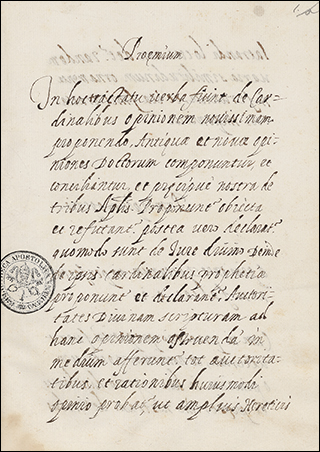 Proemium
In hoc tractatu verba fiunt de Car-
dinalibus opinionem novissimam
proponendo, Antiqua et nova opi-
niones Doctorum componuntur, et
conciliantur, et precipue nostra de
tribus Proponunt obiecta
et refutant. vero declarat
quomodo sunt de Iure divino Deinde
de ipsis cardinalibus prophetia
proponunt et declarant. Autori-
tates Divinam scripturam ad
hanc opinionem
medium afferunt tot auctorita-
tibus et rationibus huiusmodi
opinio probat ut amplius Hereticis